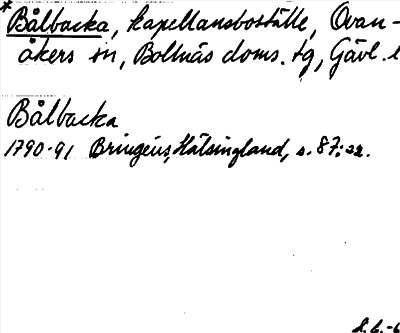 *Bålbacka, kapellansboställe, Ovan-
åkers sn, Bollnäs doms. tg, Gävl. l
Bålbacka
1790-91 Bringéus, Hälsingland, s. 87:22.